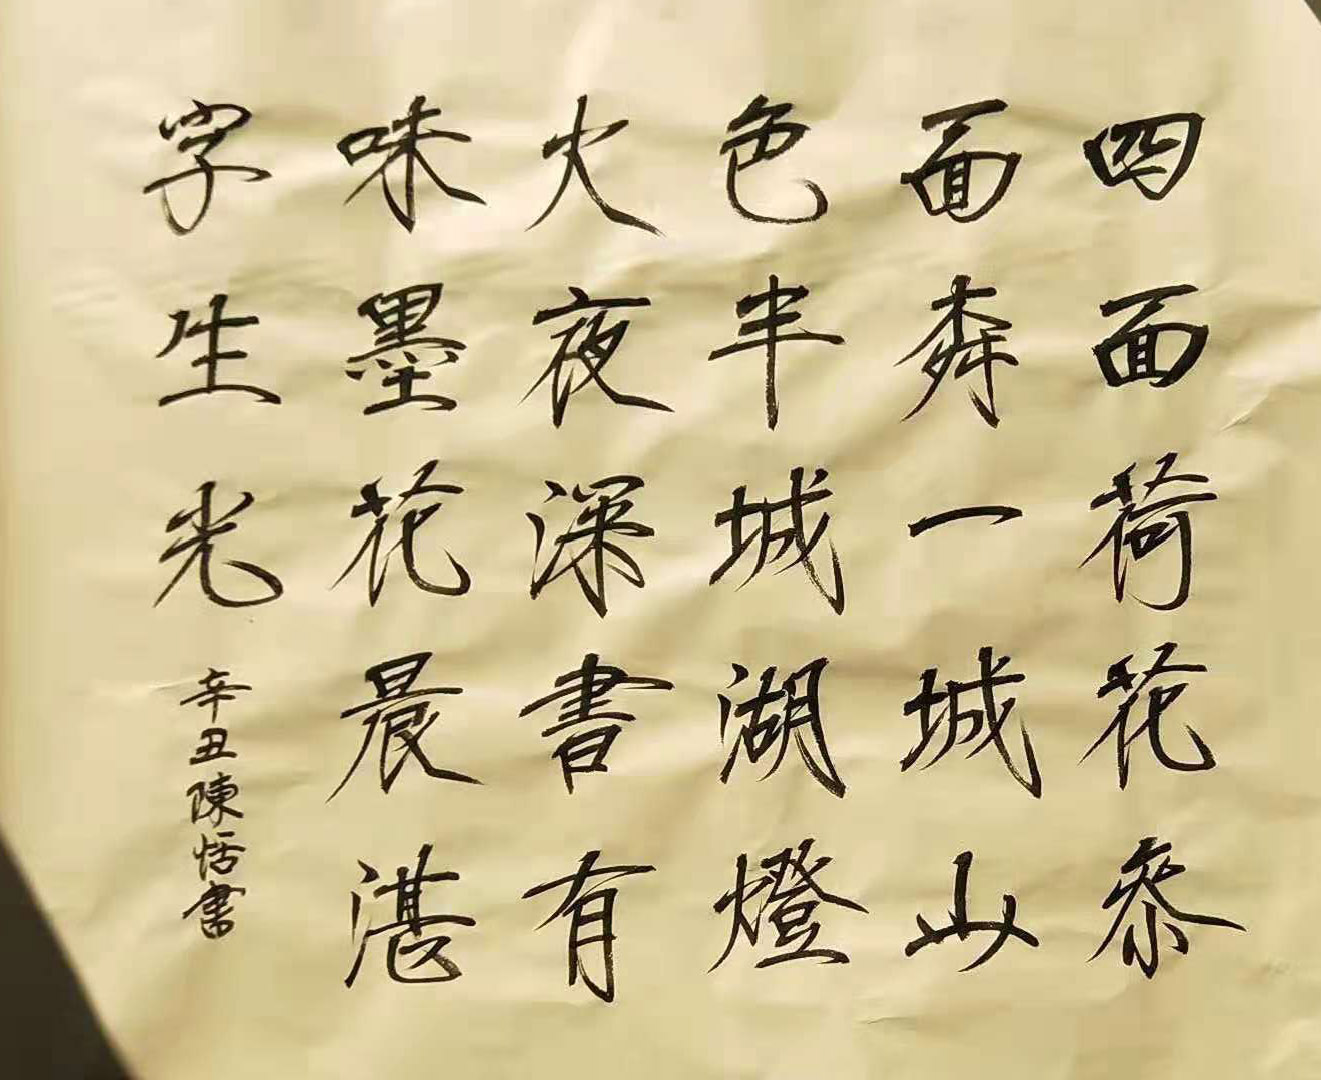 四面荷花叁
面柳一城山
色半城湖燈
火夜深書有
味墨花晨湛
字生光
辛丑陳恬書